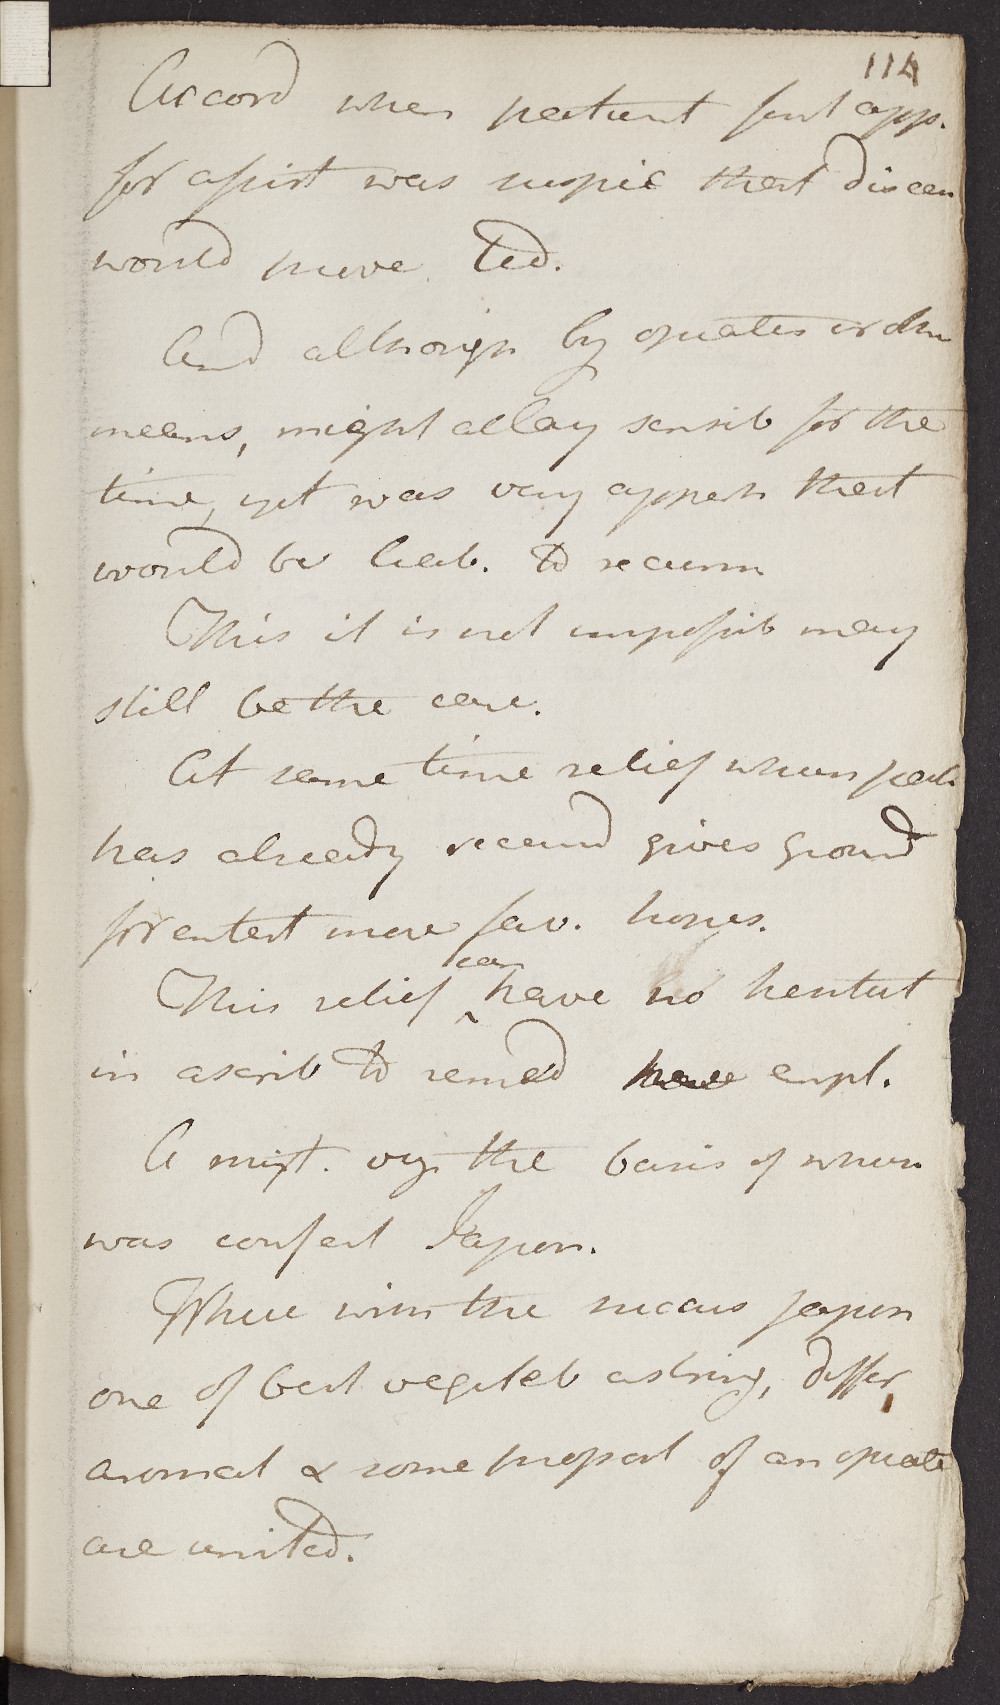 114
Accord when patient first app.
for assist was suspic that disease
would prove Ted.
And although by opiates or other
means, might allay sensib for the
time, yet was very appar that
would be liab. to recurr
This it is not impossib may
still be the case.
At same time relief whch pat.
has already receivd gives ground
for entert more fav. hopes.
This relief can have no hesitat
in ascrib to remed have empl.
A mixt. the basis of which
was confect Japon.
Where with the succus Japon
one of best vegetab astring, differ
aromat & some proport of an opiate
are united.